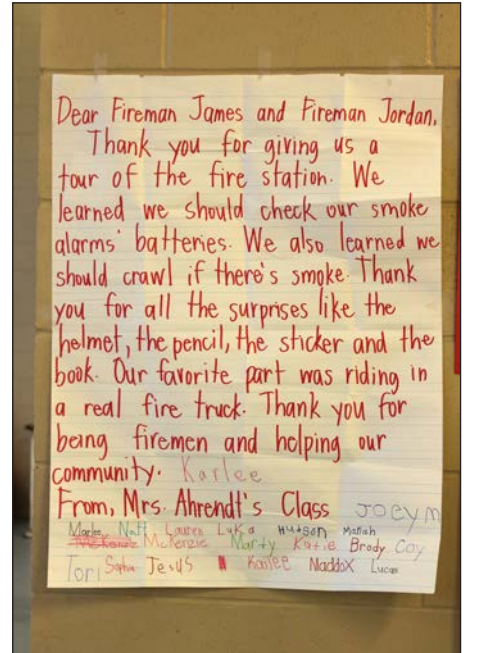 Dear Fireman James and Fireman Jordan,
Thank you for giving us a
tour of the fire station. We
learned we should check our smoke
alarms' batteries. We also learned we
should crawl if there's smoke. Thank
you for all the surprises like the
helmet, the pencil, the sticker and the
book. Our favorite part was riding in
a real fire truck. Thank you for
being firemen and helping our
community. Karlee
From, Mrs. Ahrendt's Class Joey m
Lauren Luka Hudson
McKenzie Marty Katie Brody Coy
Tori Sophia Jesus Kaylee Maddox Lucas